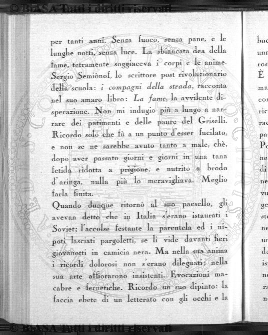 per tanti anni. Senza fuoco, senza pane, e le
lunghe notti, senza luce. La sbiancata dea della
fame, tetramente soggiaceva i corpi e le anime.
Sergio Semiònof, lo scrittore post rivoluzionario
della scuola: i compagni della strada, racconta
nel suo amaro libro: La fame, la avvilente di-
sperazione. Non mi indugio più a lungo a nar-
rare dei patimenti e delle paure del Griselli.
Ricordo solo che fu a un punto d'esser fucilato,
e non se ne sarebbe avuto tanto a male, chè,
dopo aver passato giorni e giorni in una tana
fetida ridotta a prigione, e nutrito a brodo
d'aringa, nulla più lo meravigliava. Meglio
farla finita.
Quando dunque ritornò al suo paesello, gli
avevan detto che in Italia s'erano istaurati i
Soviet; l'accolse festante la parentela ed i ni-
poti lasciati pargoletti, se li vide davanti fieri
giovanetti in camicia nera. Ma nella sua anima
i ricordi dolorosi non s'erano dileguati; nella
sua arte affioravano insistenti. Evocazioni ma-
cabre e frenetiche. Ricordo un suo dipinto: la
faccia ebete di un letterato con gli occhi e la